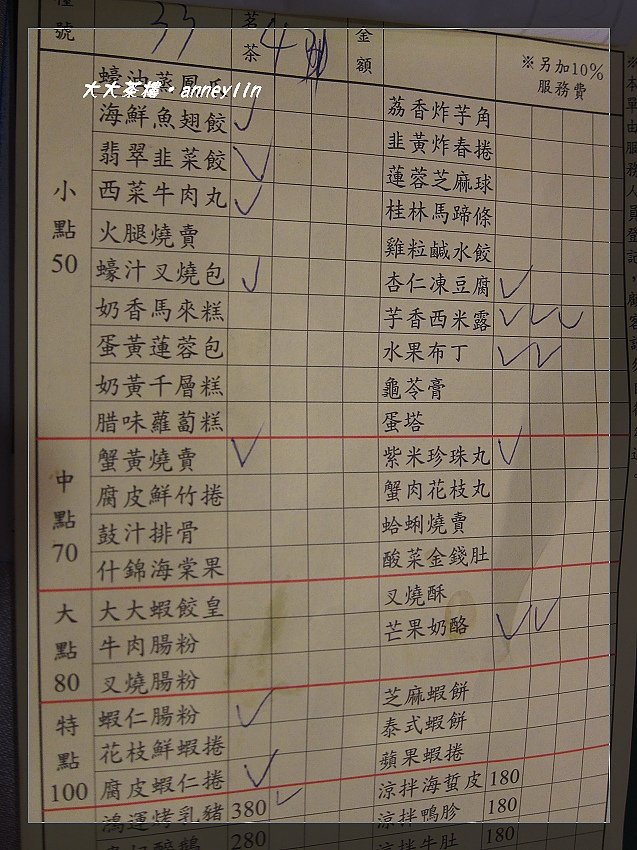 檯號 33 茗茶 4 金額 ※另加10%服務費
大大茶樓·anneylin
小點 50
蠔油蒸鳳爪
海鮮魚翅餃 荔香炸芋角
翡翠韭菜餃 韭黃炸春捲
西菜牛肉丸 蓮蓉芝麻球
火腿燒賣 桂林馬蹄條
蠔汁叉燒包 雞粒鹹水餃
奶香馬來糕 杏仁凍豆腐
蛋黃蓮蓉包 芋香西米露
奶黃千層糕 水果布丁
腊味蘿蔔糕 龜苓膏
蛋塔
中點 70
蟹黃燒賣 紫米珍珠丸
腐皮鮮竹捲 蟹肉花枝丸
鼓汁排骨 蛤蜊燒賣
什錦海棠果 酸菜金錢肚
大點 80
大大蝦餃皇 叉燒酥
牛肉腸粉 芒果奶酪
叉燒腸粉
特點 100
蝦仁腸粉 芝麻蝦餅
花枝鮮蝦捲 泰式蝦餅
腐皮蝦仁捲 蘋果蝦捲
鴻運烤乳豬 380 涼拌海蜇皮 180
280 涼拌鴨胗 180
涼拌牛肚 180